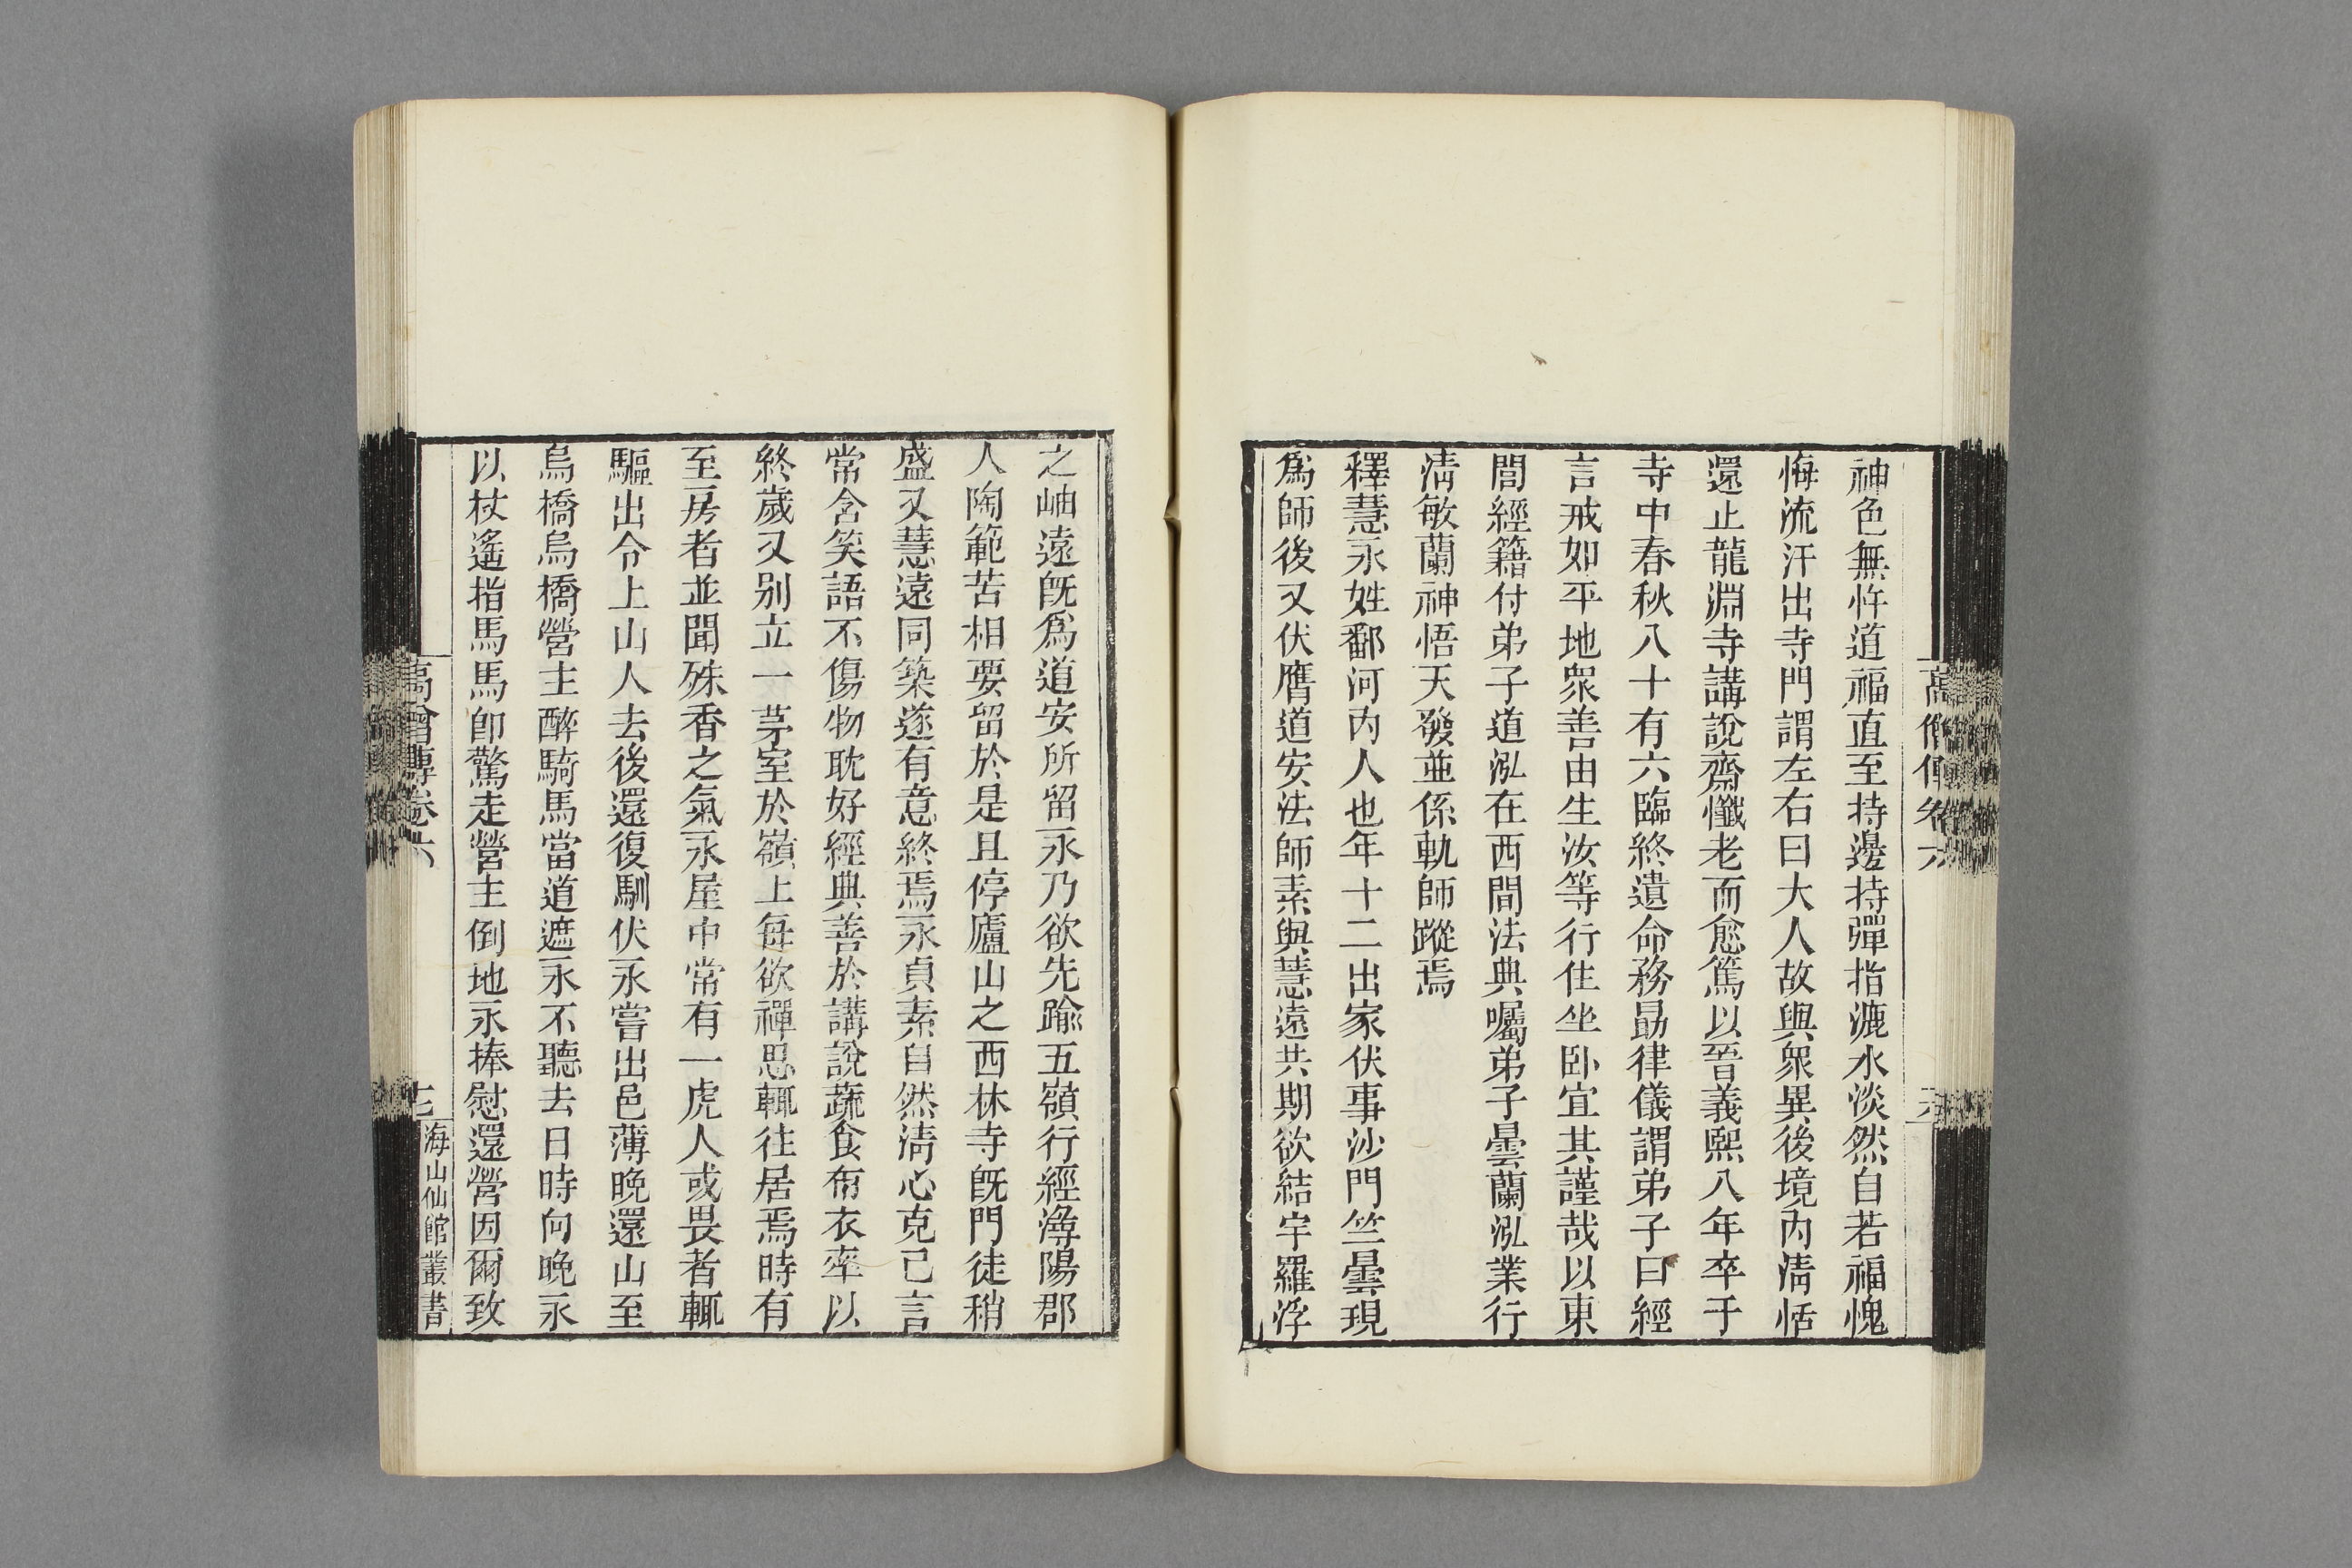 高僧傳卷六
神色無忤道福直至持邊持彈指漉水淡然自若福愧
悔流汗出寺門謂左右曰大人故與衆異後境內清恬
還止龍淵寺講說齋懺老而愈篤以晉義熙八年卒于
寺中春秋八十有六臨終遺命務勗律儀謂弟子曰經
言戒如平地衆善由生汝等行住坐臥宜其謹哉以東
間經籍付弟子道泓在西間法典囑弟子曇蘭泓業行
清敏蘭神悟天發並係軌師蹤焉
釋慧永姓鄱河內人也年十二出家伏事沙門竺曇現
爲師後又伏膺道安法師素與慧遠共期欲結宇羅浮
之岫遠旣爲道安所留永乃欲先踰五嶺行經潯陽郡
人陶範苦相要留於是且停廬山之西林寺旣門徒稍
盛又慧遠同築遂有意終焉永貞素自然清心克己言
常含笑語不傷物耽好經典善於講說蔬食布衣率以
終歲又别立一茅室於嶺上每欲禪思輒往居焉時有
至房者並聞殊香之氣永屋中常有一虎人或畏者輒
驅出令上山人去後還復馴伏永嘗出邑薄晚還山至
烏橋烏橋營主醉騎馬當道遮永不聽去日時向晚永
以杖遙指馬馬卽驚走營主倒地永捧慰還營因爾致
高僧傳卷六
七
海山仙館叢書